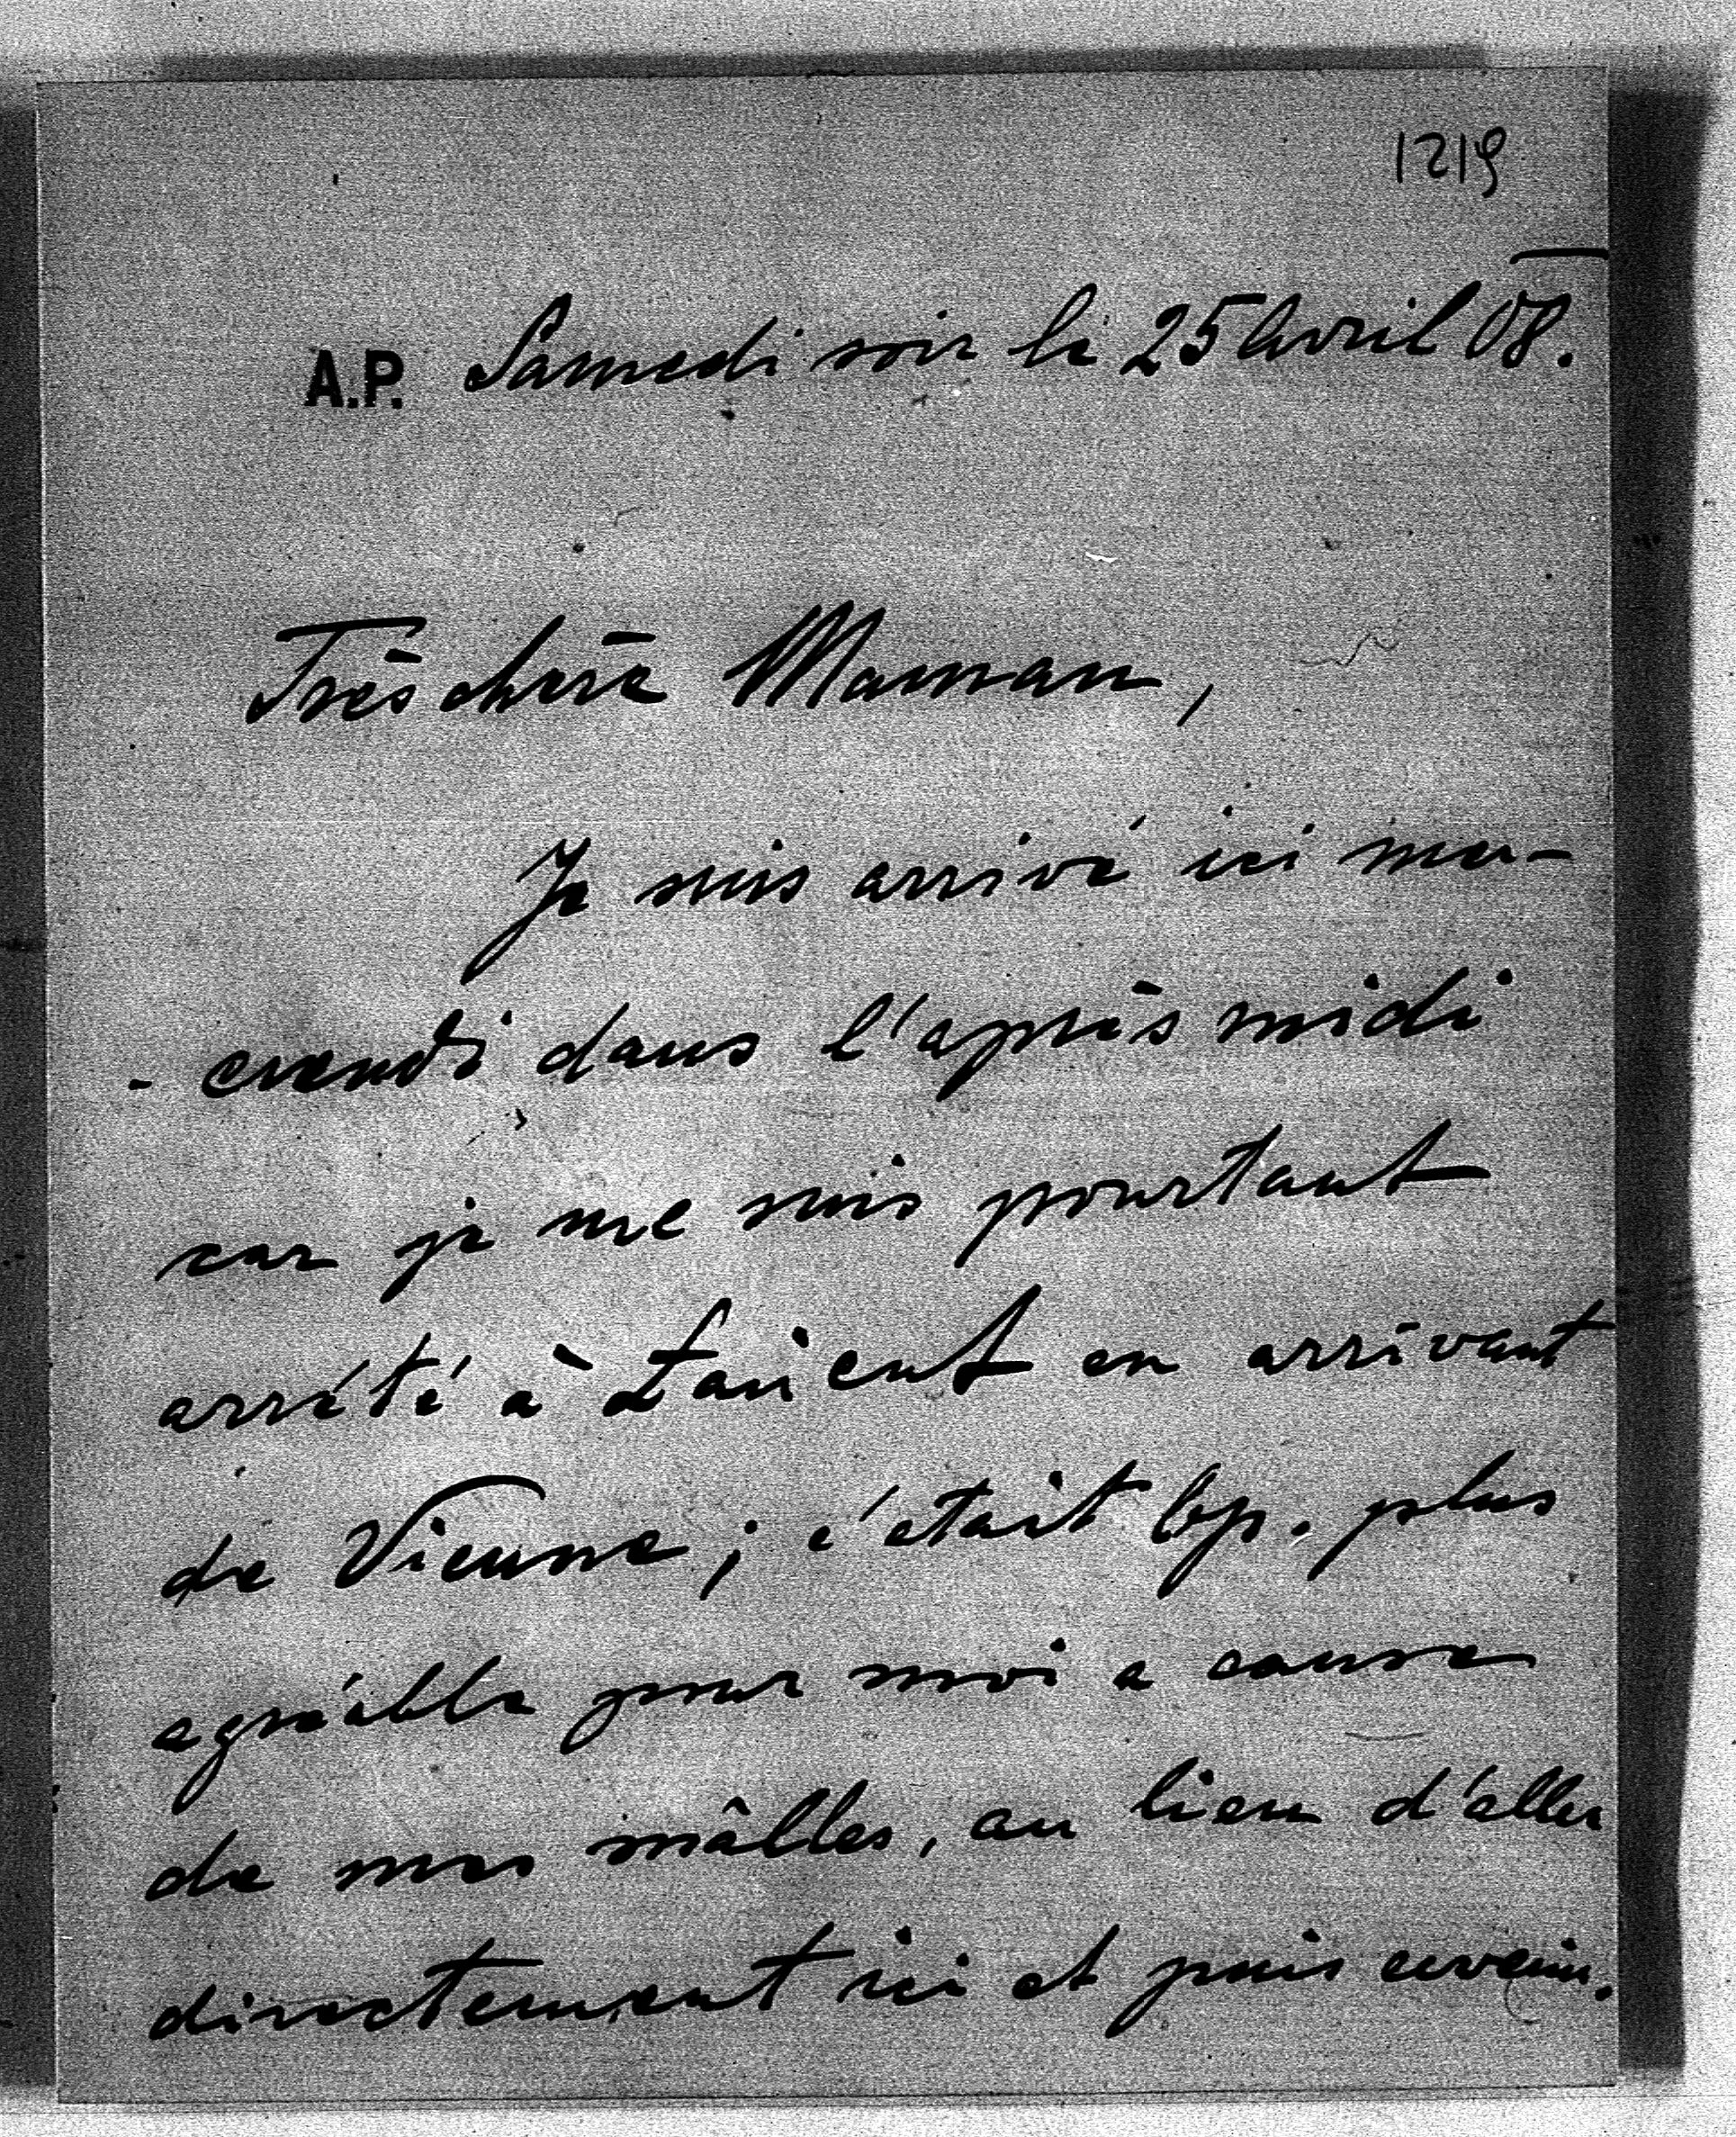 1219
A.P. Samedi soir le 25 Avril 08.
Très chère Maman,
Je suis arrivé ici mer-
- credi dans l'après midi
car je me suis pourtant
arrété à Łańcut en arrivant
de Vienne; c'était bp. plus
agréable pour moi a cause
de mes mâlles, au lieu d'aller
directement ici et puis